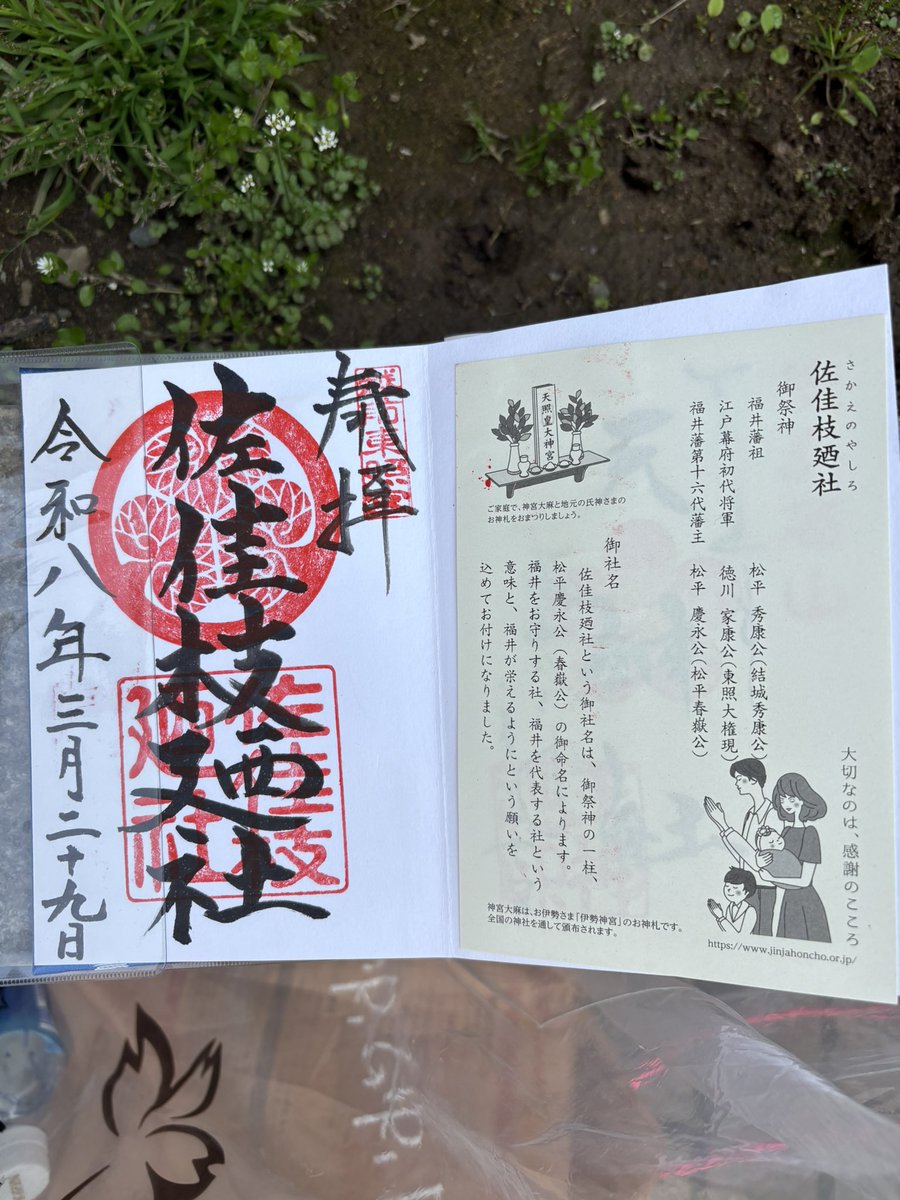 さかえのやしろ
佐佳枝廼社
御祭神
福井藩祖 松平 秀康公(結城秀康公)
江戸幕府初代将軍 徳川 家康公(東照大権現)
福井藩第十六代藩主 松平 慶永公(松平春嶽公)
御社名
佐佳枝廼社という御社名は、御祭神の一柱、
松平慶永公(春嶽公)の御命名によります。
福井をお守りする社、福井を代表する社という
意味と、福井が栄えるようにという願いを
込めてお付けになりました。
天照皇大神宮
ご家庭で、神宮大麻と地元の氏神さまの
お神札をおまつりしましょう。
大切なのは、感謝のこころ
神宮大麻は、お伊勢さま「伊勢神宮」のお神札です。
全国の神社を通して頒布されます。
https://www.jinjahoncho.or.jp/
奉拝
佐佳枝廼社
佐佳枝
廼社
令和八年三月二十九日